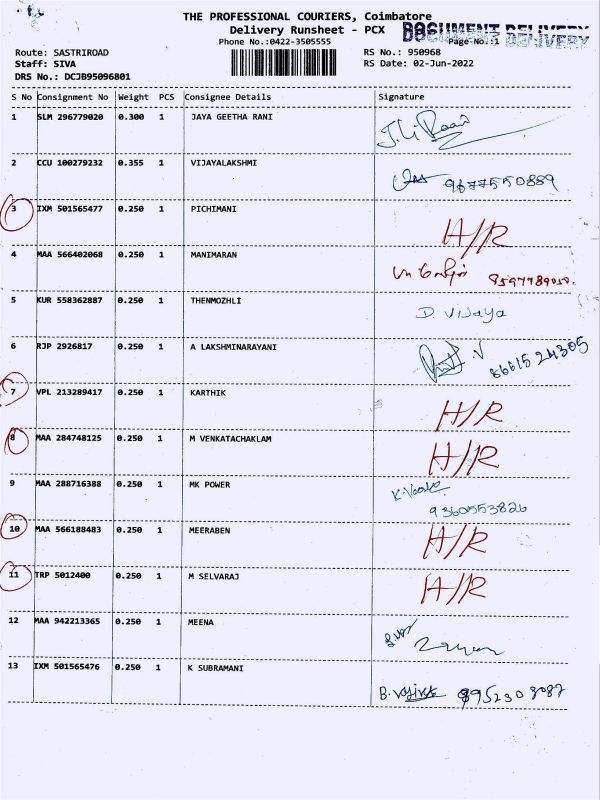 THE PROFESSIONAL COURIERS, Coimbatore
Delivery Runsheet - PCX
DOCUMENT DELIVERY
DELIVERY
Phone No.:0422-3505555
Page No.:1
Route: SASTRIROAD
RS No.: 950968
Staff: SIVA
RS Date: 02-Jun-2022
DRS No.: DCJB95096801
S No Consignment No Weight PCS Consignee Details Signature
1 SLM 296779020 0.300 1 JAYA GEETHA RANI
2 CCU 100279232 0.355 1 VIJAYALAKSHMI
9677550889
3 IXM 501565477 0.250 1 PICHIMANI
H/R
4 MAA 566402068 0.250 1 MANIMARAN
5 KUR 558362887 0.250 1 THENMOZHLI
D Vijaya
6 RJP 2926817 0.250 1 A LAKSHMINARAYANI
8661524305
7 VPL 213289417 0.250 1 KARTHIK
H/R
8 MAA 284748125 0.250 1 M VENKATACHAKLAM
H/R
9 MAA 288716388 0.250 1 MK POWER
9360553826
10 MAA 566188483 0.250 1 MEERABEN
H/R
11 TRP 5012400 0.250 1 M SELVARAJ
H/R
12 MAA 942213365 0.250 1 MEENA
13 IXM 501565476 0.250 1 K SUBRAMANI